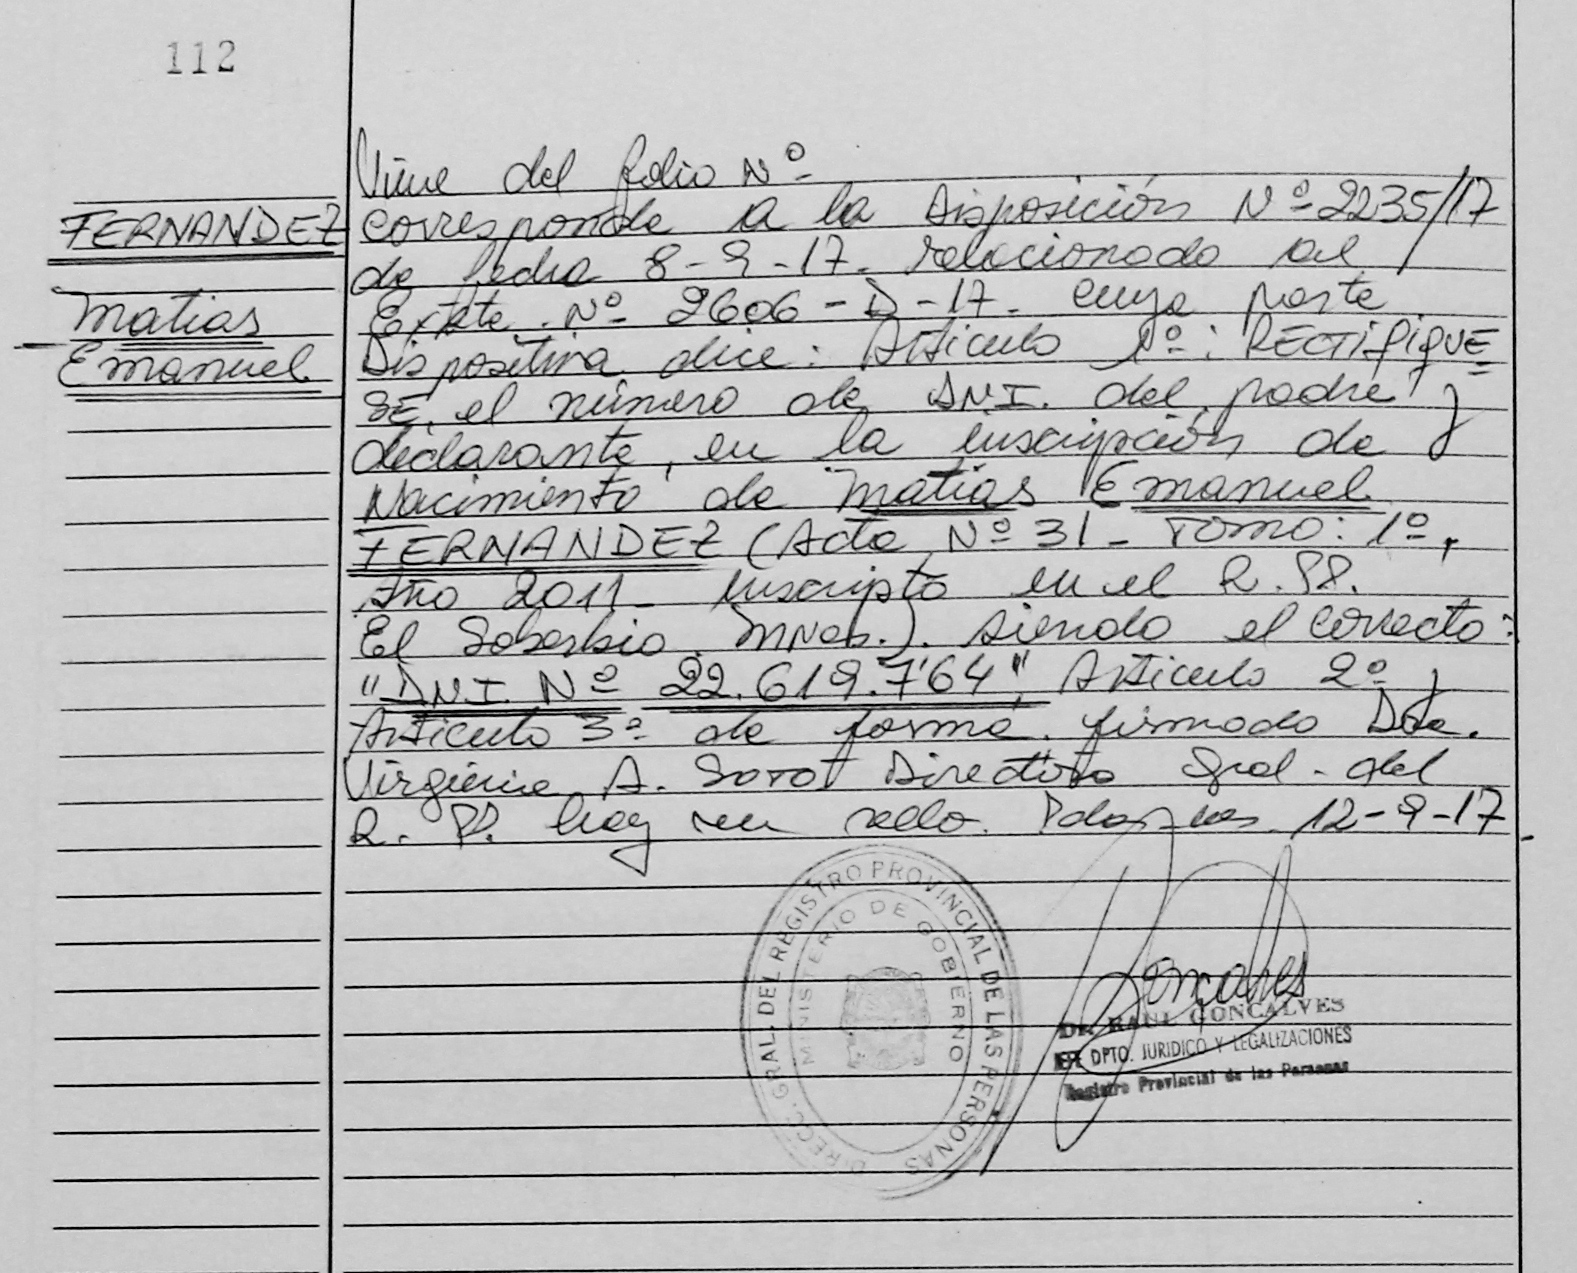 112
Viene del folio Nº
FERNANDEZ
Matias
Emanuel
corresponde a la Disposición Nº 2235/17
de fecha 8-9-17. relacionado al
Expte. Nº 2606-D-17. cuya parte
Dispositiva dice: Articulo 1º: RECTIFIQUE
SE, el número de DNI. del padre y
declarante, en la inscripción de
Nacimiento de Matias Emanuel
FERNANDEZ (Acta Nº 31 - Tomo: 1º,
Año 2011 - inscripto en el R.PP.
El Soberbio Mnes.). siendo el correcto:
"DNI. Nº 22.619.764" Articulo 2º y
Articulo 3º de forma. firmado Dra.
Virginia A. Soto Directora Gral. del
R. PP. hay un sello. Posadas 12-9-17.
DIRECC. GRAL. DEL REGISTRO PROVINCIAL DE LAS PERSONAS
MINISTERIO DE GOBIERNO
Dr. RAUL GONCALVES
JEFE DPTO. JURIDICO Y LEGALIZACIONES
Registro Provincial de las Personas